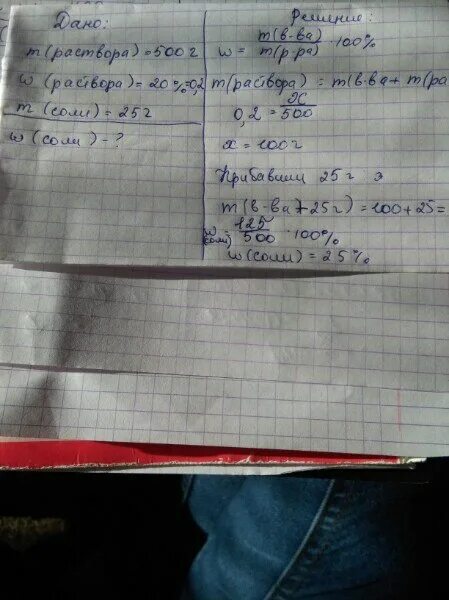 Дано:
m (раствора) = 500 г
w (раствора) = 20% = 0,2
m (соли) = 25 г
w (соли) - ?
Решение:
w = m(в-ва) / m(р-ра) · 100%
m(раствора) = m(в-ва + m(ра
0,2 = x / 500
x = 100 г
Прибавили 25 г э
m (в-ва + 25 г) = 100 + 25 =
w (соли) = 125 / 500 · 100%
w (соли) = 25%